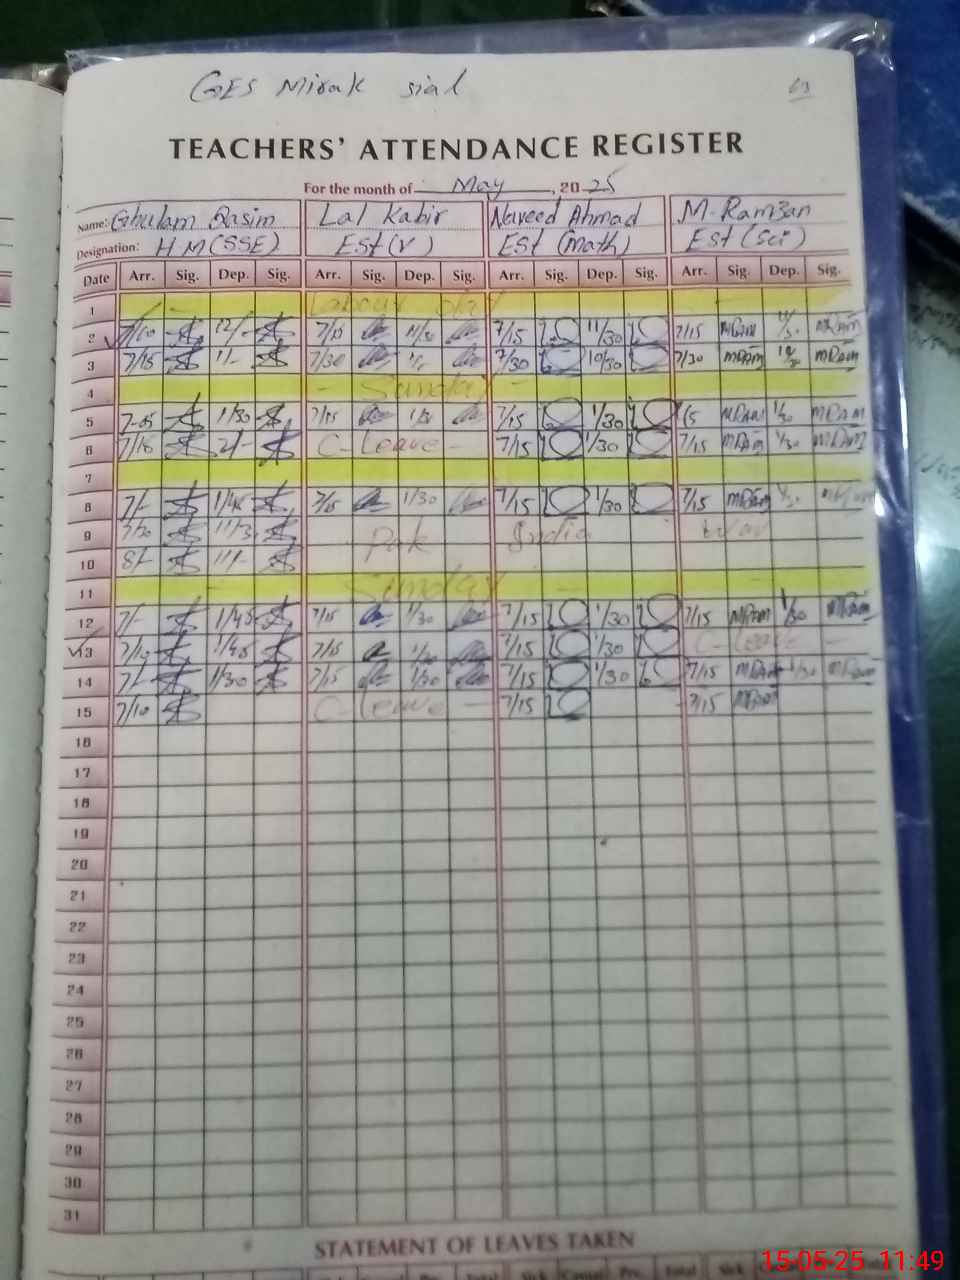 GES Mirak sial
63
TEACHERS' ATTENDANCE REGISTER
For the month of May, 2025
Name: Ghulam Qasim Lal Kabir Naveed Ahmad M. Ramzan
Designation: HM(SSE) EST(V) EST(math) EST(Sci)
Date Arr. Sig. Dep. Sig. Arr. Sig. Dep. Sig. Arr. Sig. Dep. Sig. Arr. Sig. Dep. Sig.
1 Labour Day
2 7/10 12/- 7/15 11/30 7/15 11/30 7/15 MRam 11/30 MRam
3 7/15 11/- 7/30 7/30 10/30 7/30 MRam MRam
4 Sunday
5 7-05 1/30 7/15 1/30 7/15 1/30 MRam 1/30 MRam
6 7/16 2/- C-Leave 7/15 1/30 7/15 MRam 1/30 MRam
7
8 7/- 1/45 7/15 1/30 7/15 1/30 7/15 MRam MRam
9 7/30 Pak India War
10 8/- 11/-
11 Sunday
12 7/- 1/45 7/15 1/30 7/15 1/30 7/15 MRam 1/30 MRam
13 7/10 1/45 7/15 1/30 7/15 1/30 C-Leave
14 7/- 1/30 7/15 1/30 7/15 1/30 7/15 MRam 1/30 MRam
15 7/10 C-Leave 7/15 7/15 MRam
16
17
18
19
20
21
22
23
24
25
26
27
28
29
30
31
STATEMENT OF LEAVES TAKEN
15-05-25 11:49